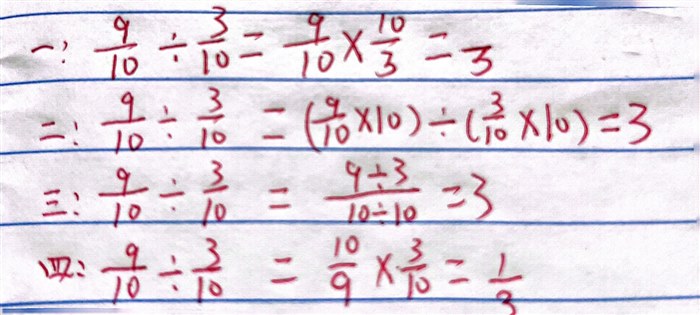 一: 9/10 ÷ 3/10 = 9/10 × 10/3 = 3
二: 9/10 ÷ 3/10 = (9/10 × 10) ÷ (3/10 × 10) = 3
三: 9/10 ÷ 3/10 = 9÷3/10÷10 = 3
四: 9/10 ÷ 3/10 = 10/9 × 3/10 = 1/3